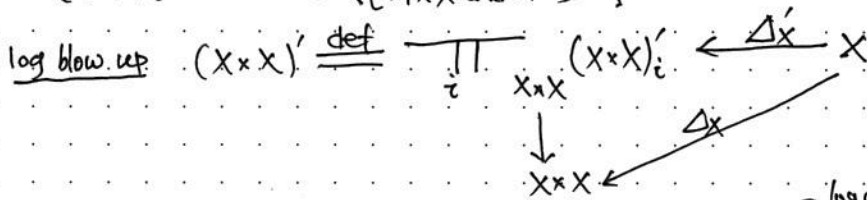 log blow up (X×X)' def = ∏ i X×X (X×X)'i ← Δ'X X
↓ ΔX
X×X